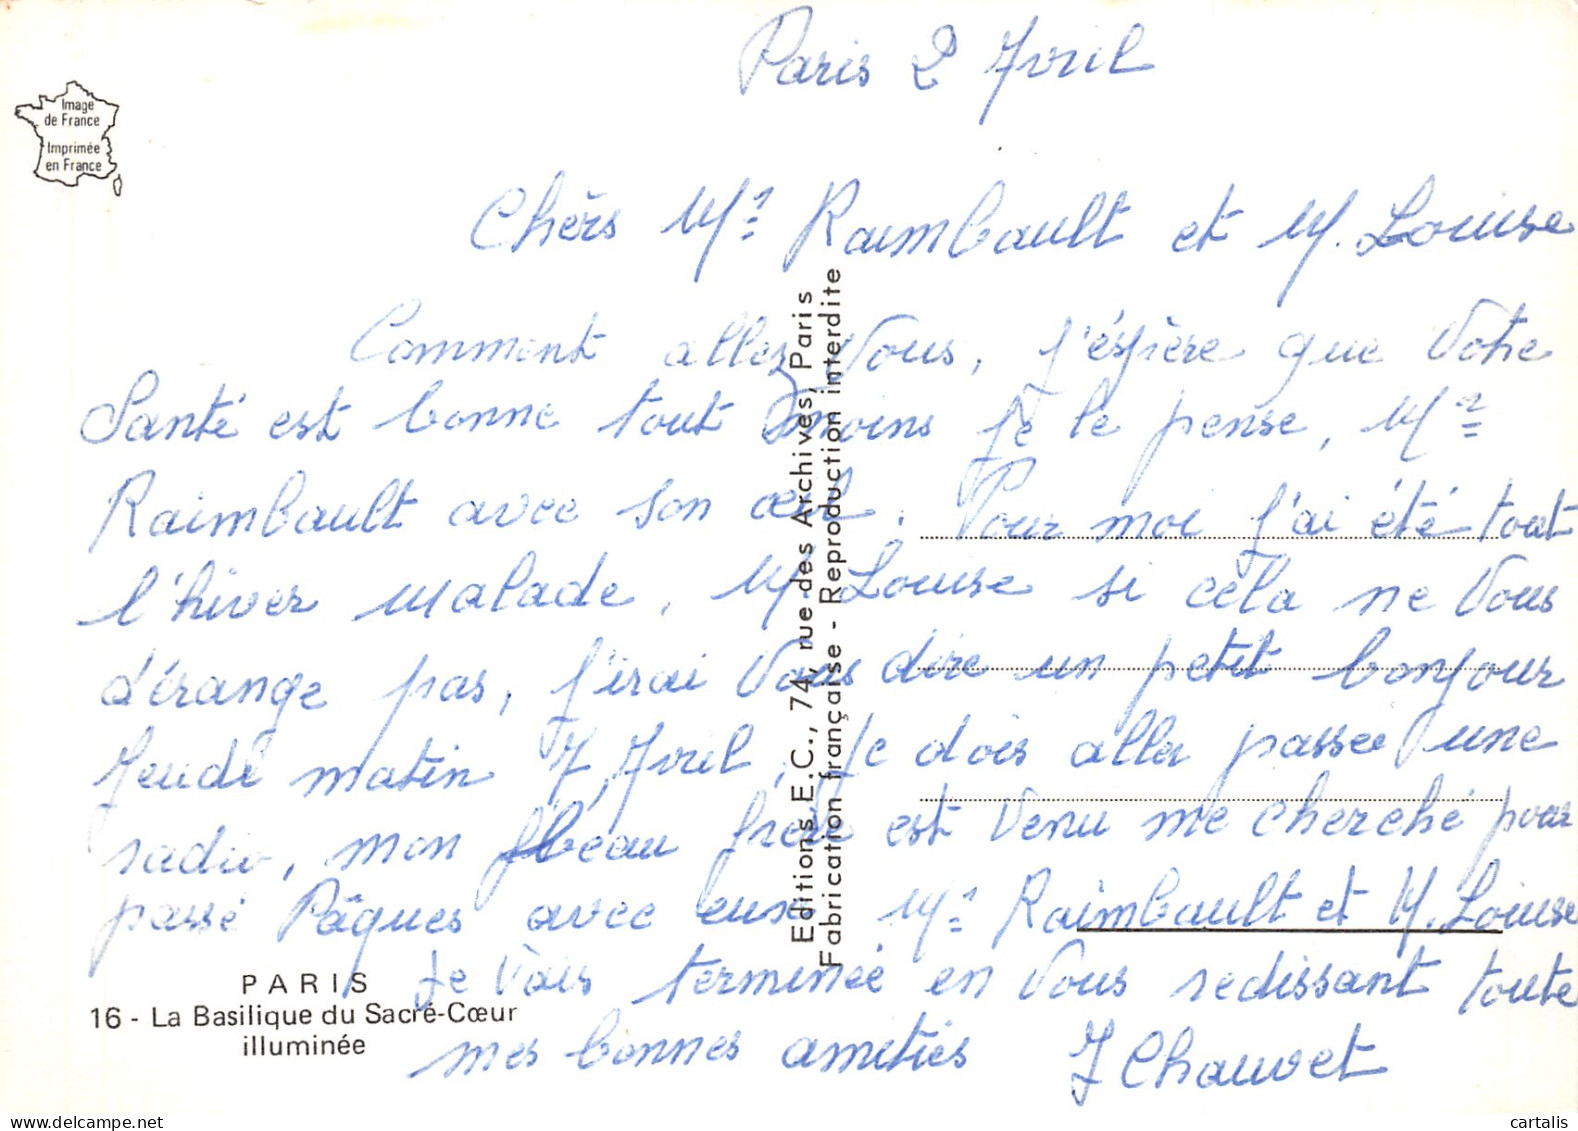 Paris 2 Avril
Image
de France
Imprimée
en France
Chèrs Mr Raimbault et M. Louise
Comment allez Vous, j'éspère que Votre
Santé est bonne tout moins je le pense, Mr
Raimbault avec son œil. Pour moi j'ai été tout
l'hiver malade, M Louise si cela ne Vous
dérange pas, j'irai Vous dire un petit bonjour
Jeudi matin 7 Avril, Je dois aller passee une
radio, mon beau frère est Venu me cherché pour
passé Pâques avec eux Mr Raimbault et M. Louise
Je Vais terminée en Vous redissant toute
mes bonnes amitiés J Chauvet
Editions E.C., 74, rue des Archives, Paris
Fabrication française - Reproduction interdite
PARIS
16 - La Basilique du Sacré-Cœur
illuminée
cartalis